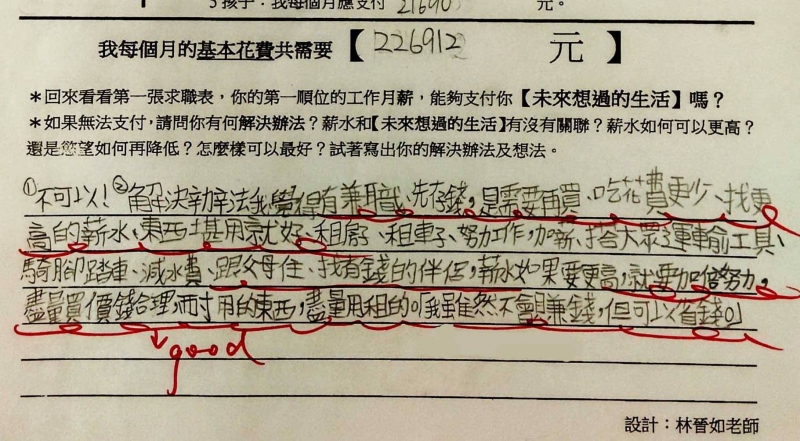 5 孩子：我每個月應支付 21690 元。
我每個月的基本花費共需要【226912 元】
＊回來看看第一張求職表，你的第一順位的工作月薪，能夠支付你【未來想過的生活】嗎？
＊如果無法支付，請問你有何解決辦法？薪水和【未來想過的生活】有沒有關聯？薪水如何可以更高？
還是慾望如何再降低？怎麼樣可以最好？試著寫出你的解決辦法及想法。
①不可以！②解決辦法我覺得有兼職、先存錢，是需要再買、吃花費更少、找更
高的薪水、東西堪用就好、租房子、租車子、努力工作，加薪、搭大眾運輸工具、
騎腳踏車、減水費、跟父母住、找有錢的伴侶，薪水如果要更高，就要加倍努力，
盡量買價錢合理，耐用的東西，盡量用租的。「我雖然不會賺錢，但可以省錢。」
good
設計：林晉如老師